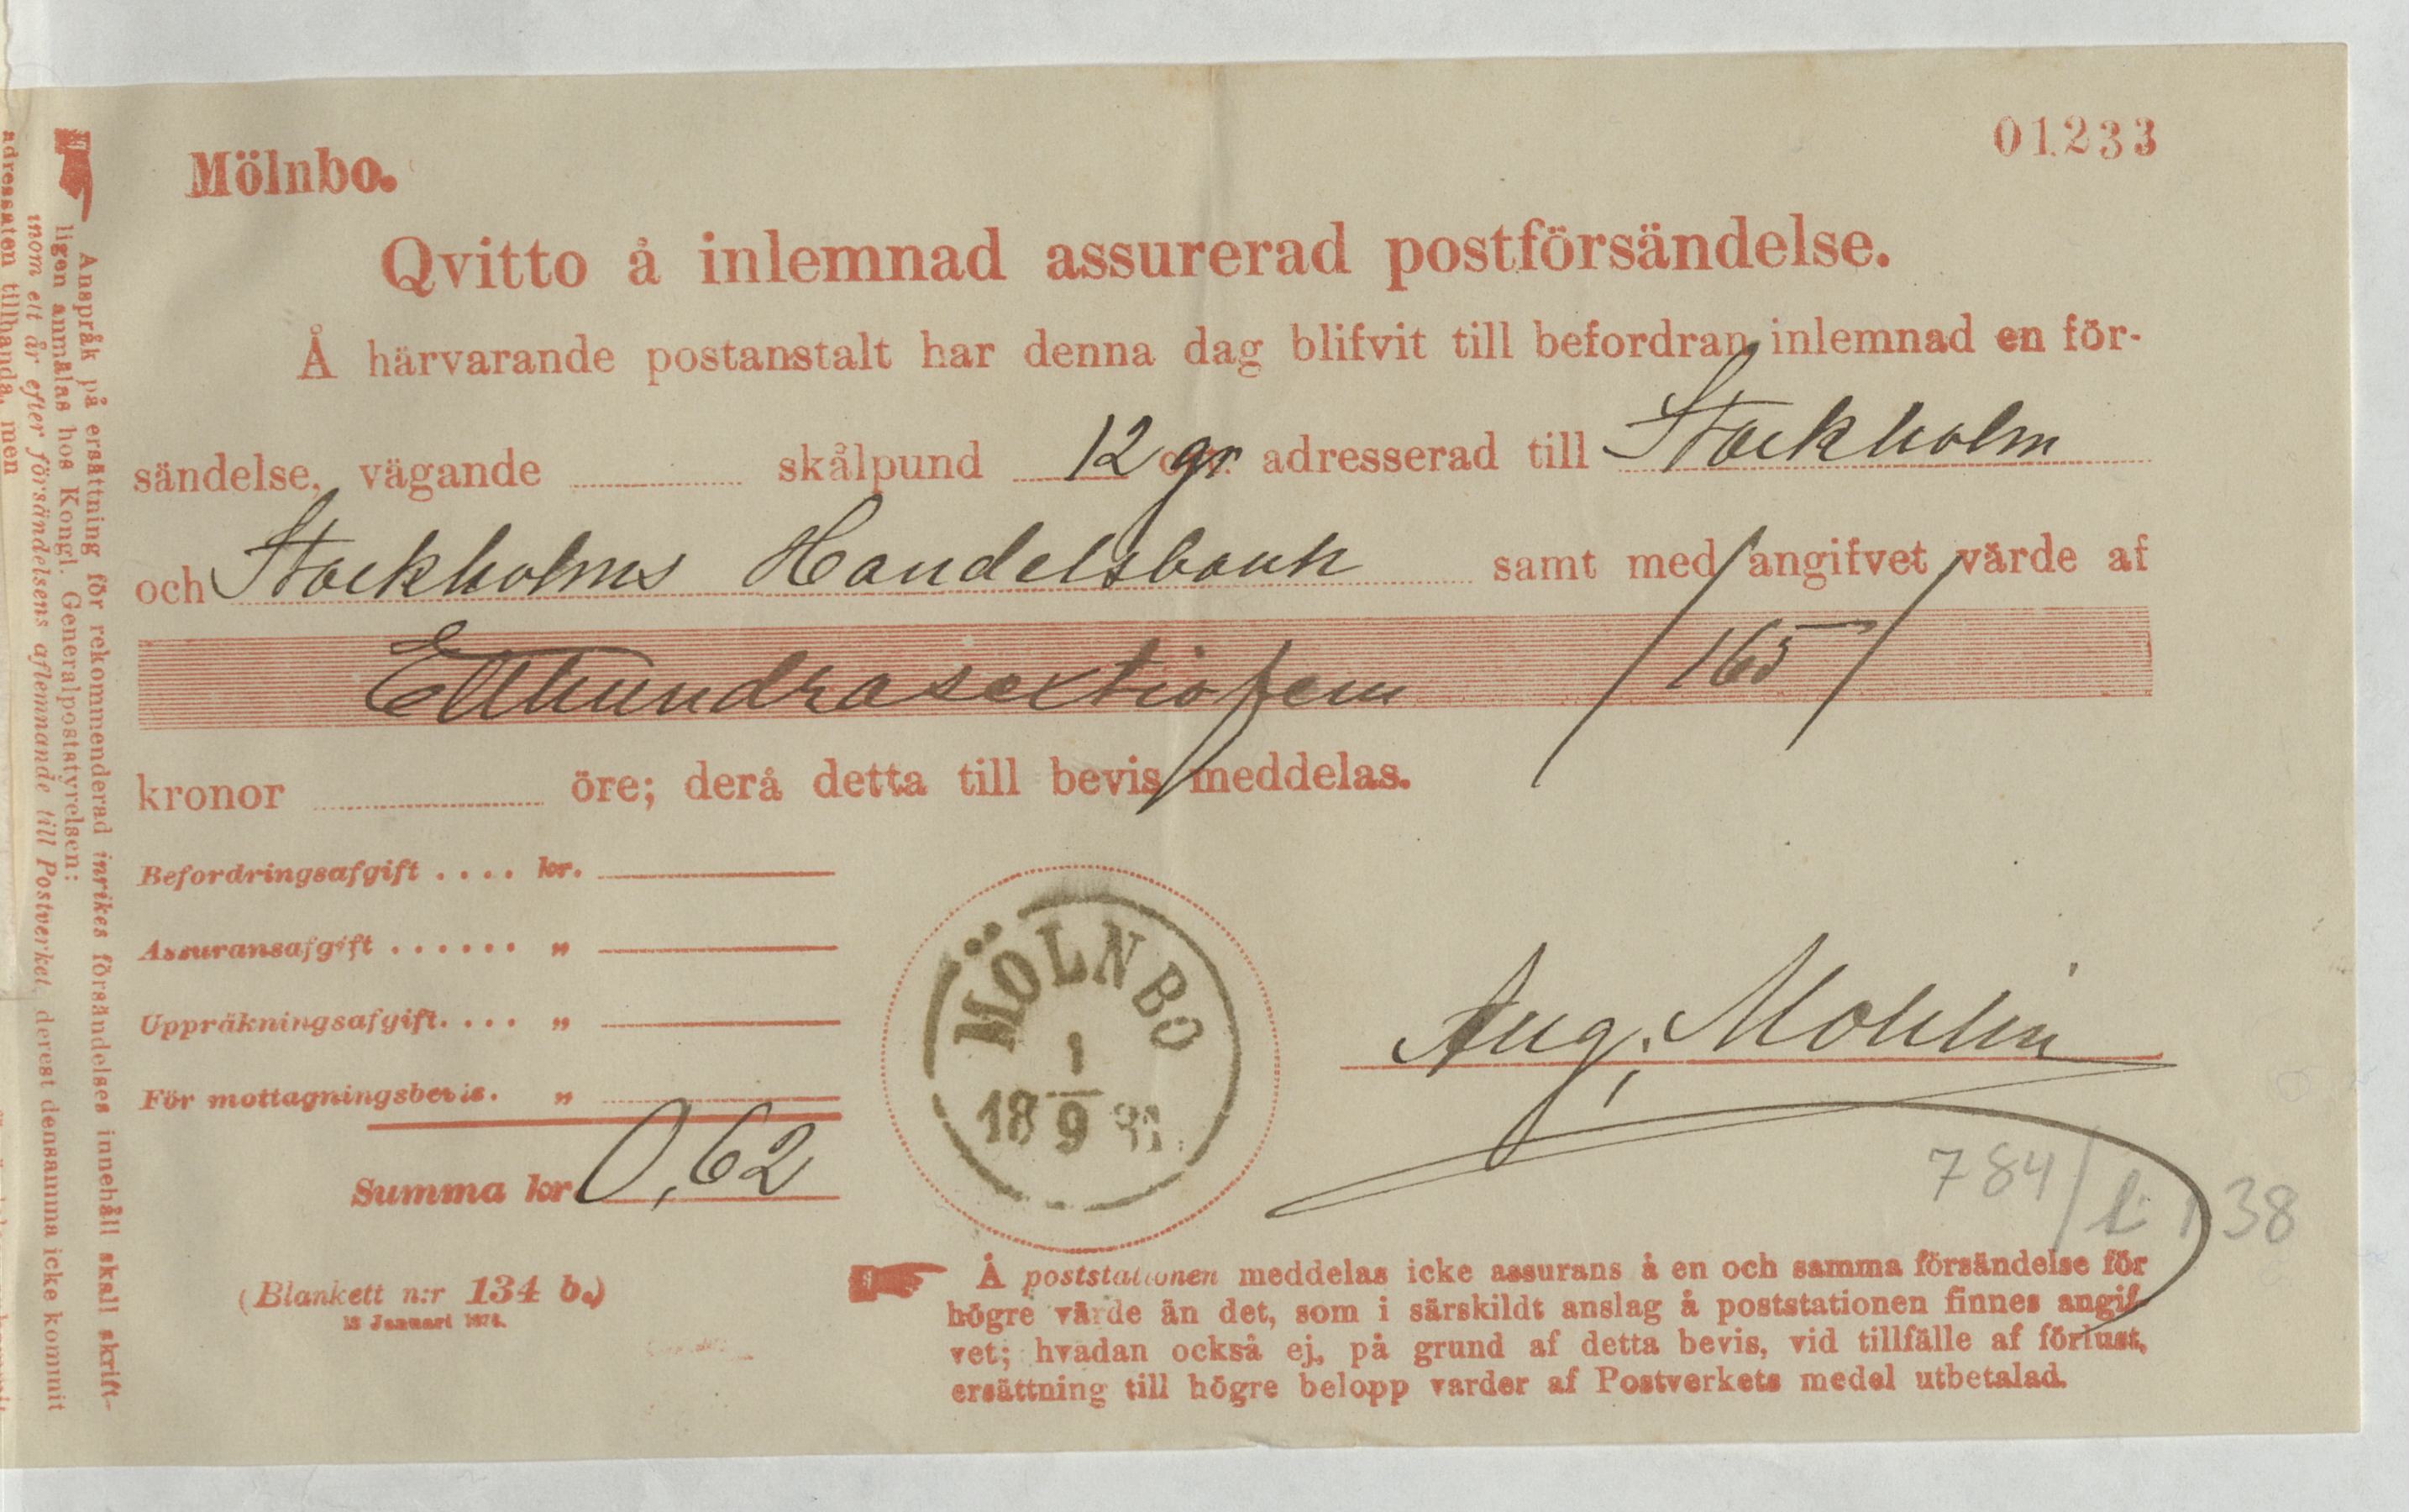 01233
Mölnbo.
Qvitto å inlemnad assurerad postförsändelse.
Å härvarande postanstalt har denna dag blifvit till befordran inlemnad en för-
sändelse, vägande skålpund 12 gr adresserad till Stockholm
och Stockholms Handelsbank samt med angifvet värde af
Etthundrasextiofem /165/
kronor öre; derå detta till bevis meddelas.
Befordringsafgift . . . . kr.
Assuransafgift . . . . . . „
Uppräkningsafgift. . . . „
För mottagningsbevis. „
Summa kr 0,62
MÖLNBO
1
18 9
Aug. Mohlin
784/ 38
(Blankett n:r 134 b.)
Januari
Å poststationen meddelas icke assurans å en och samma försändelse för
högre värde än det, som i särskildt anslag å poststationen finnes angif-
vet; hvadan också ej, på grund af detta bevis, vid tillfälle af förlust,
ersättning till högre belopp varder af Postverkets medel utbetalad.
Anspråk på ersättning för rekommenderad inrikes försändelses innehåll skall skrift-
ligen anmälas hos Kongl. Generalpoststyrelsen:
inom ett år efter försändelsens aflemnande till Postverket, derest densamma icke kommit
adressaten tillhanda, men